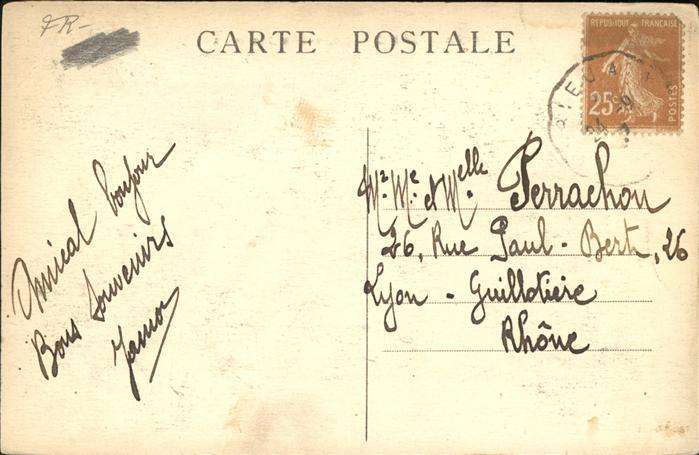 FR-
CARTE POSTALE
REPUBLIQUE FRANÇAISE
25c
POSTES
Amical bonjour
Bons Souvenirs
Mr. Me. et Melle Perrachon
26, Rue Paul-Bert, 26
Lyon - Guillotière
Rhône